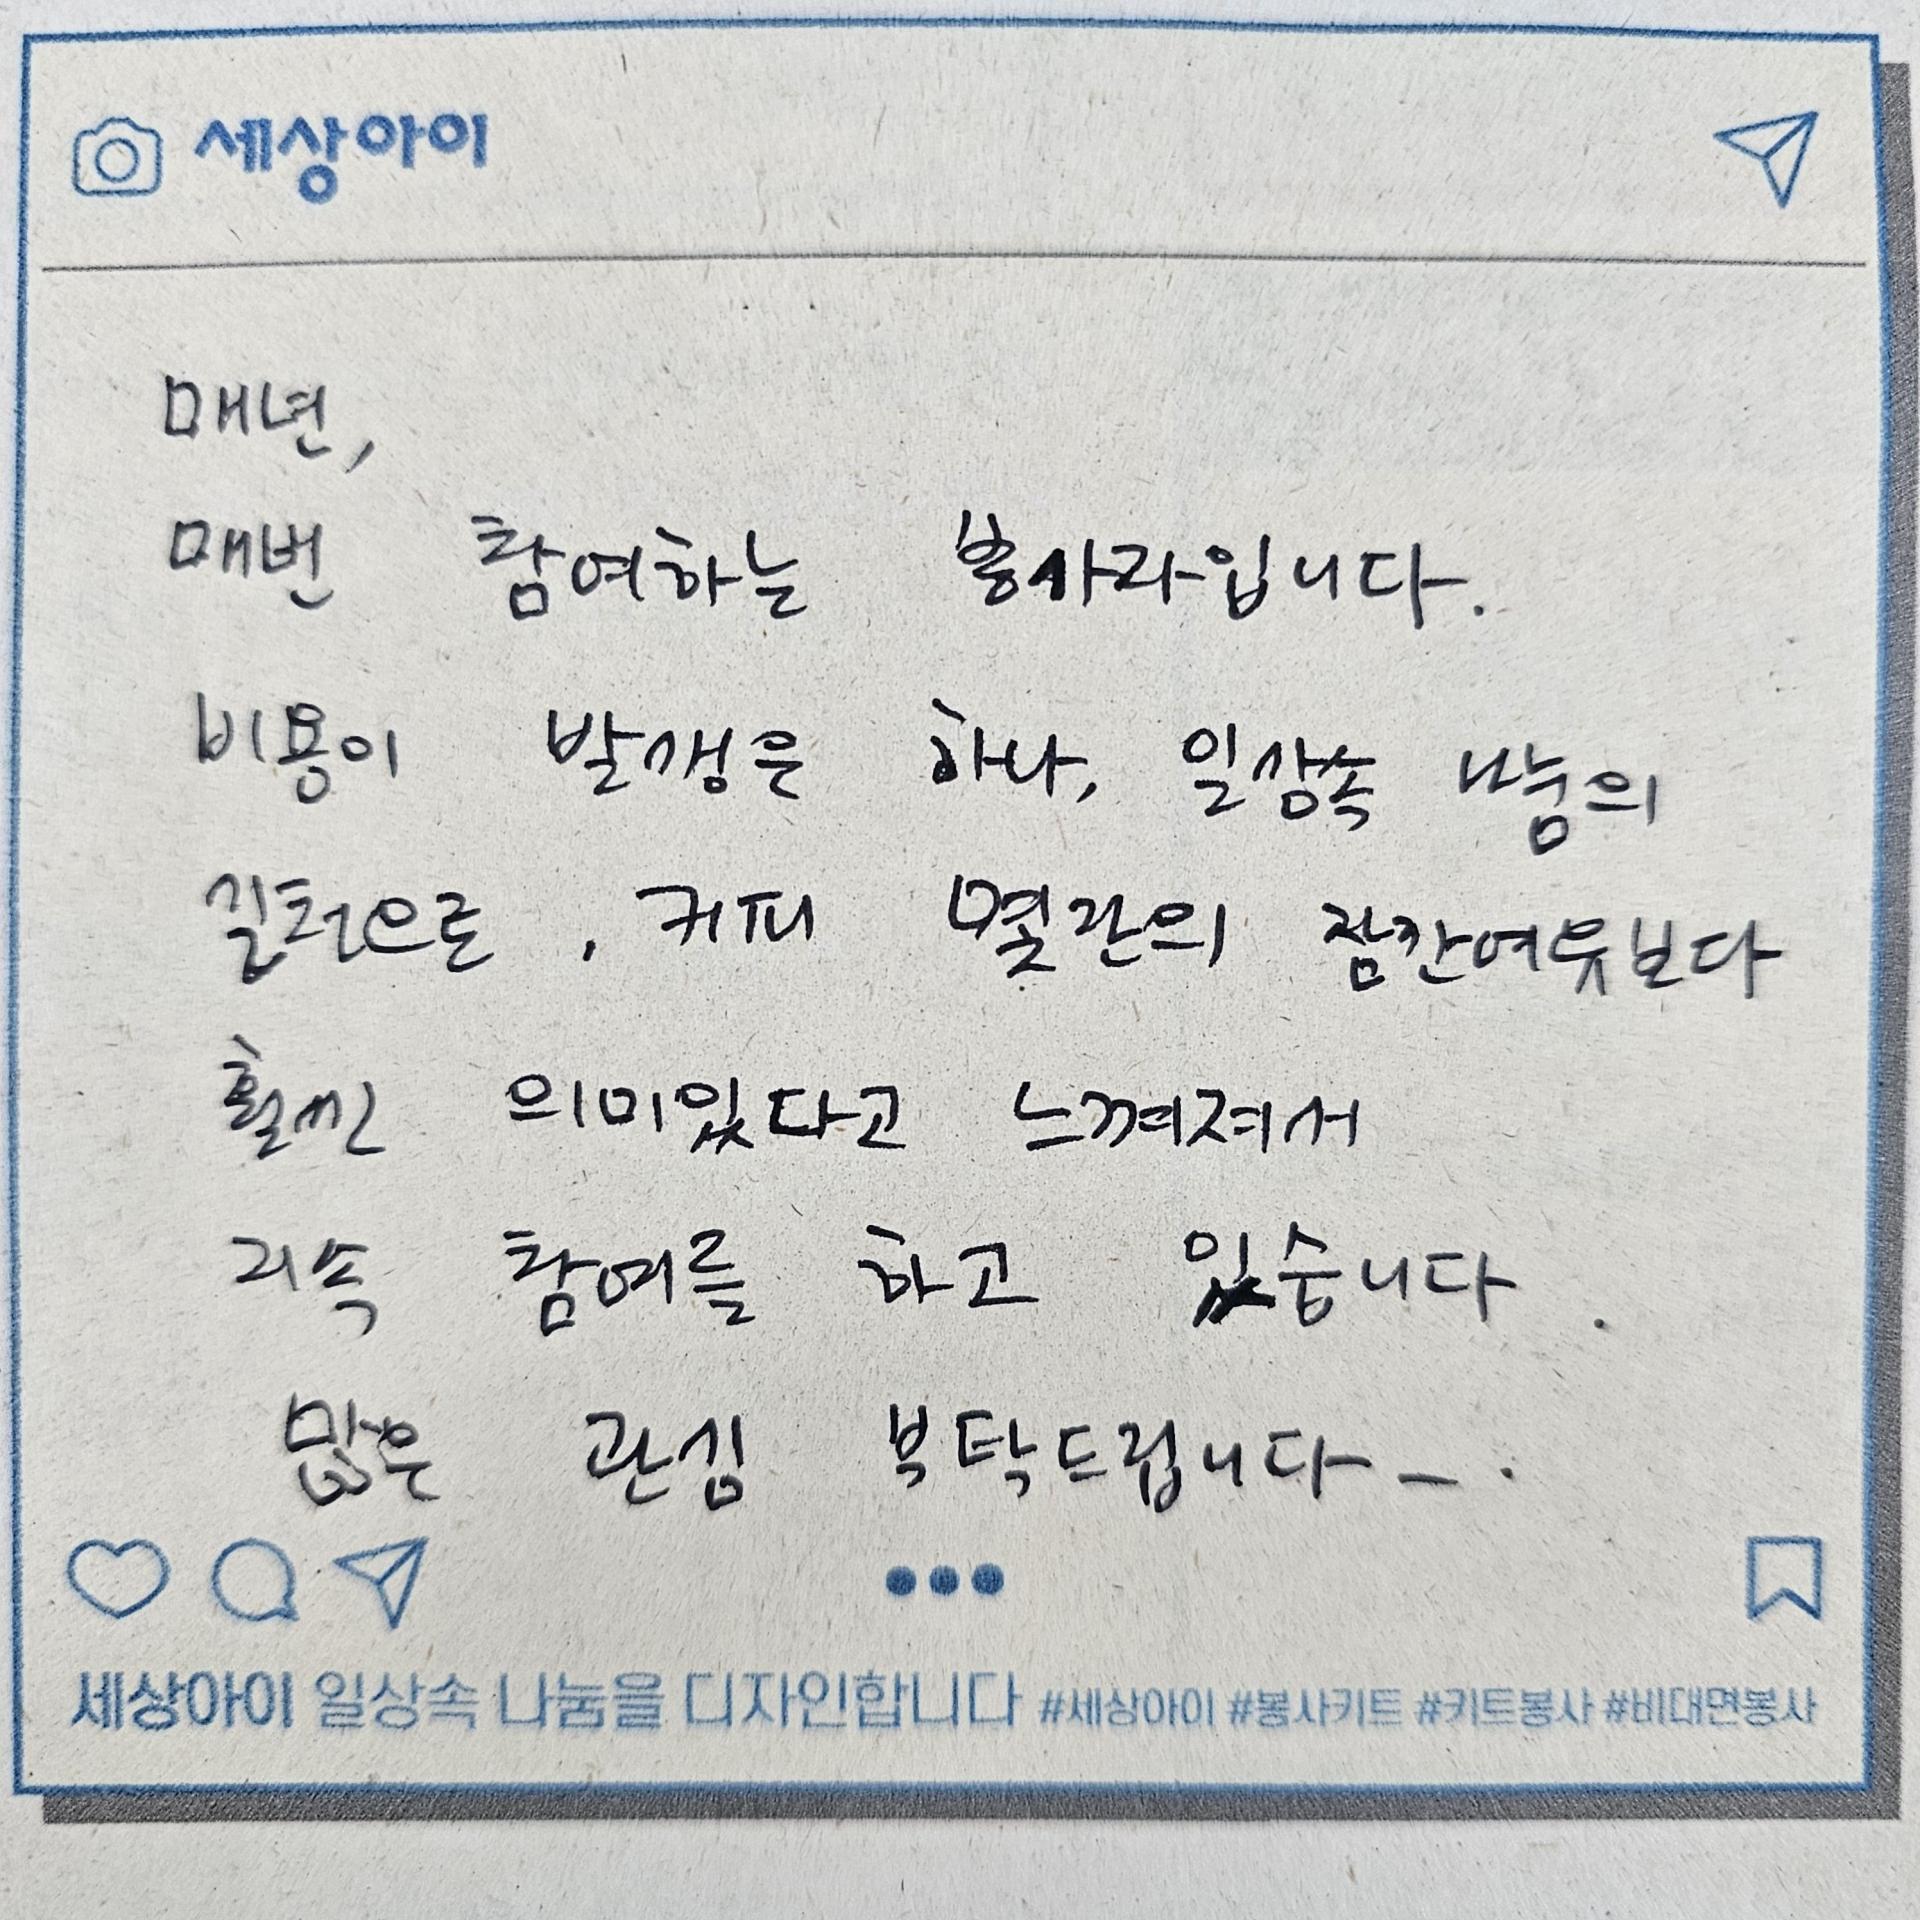 세상아이
매년,
매번 참여하는 봉사라입니다.
비용이 발생은 하나, 일상속 나눔의
실천으로, 커피 몇잔의 잠깐여유보다
훨씬 의미있다고 느껴져서
지속 참여를 하고 있습니다.
많은 관심 부탁드립니다_.
세상아이 일상속 나눔을 디자인합니다 #세상아이 #봉사키트 #키트봉사 #비대면봉사